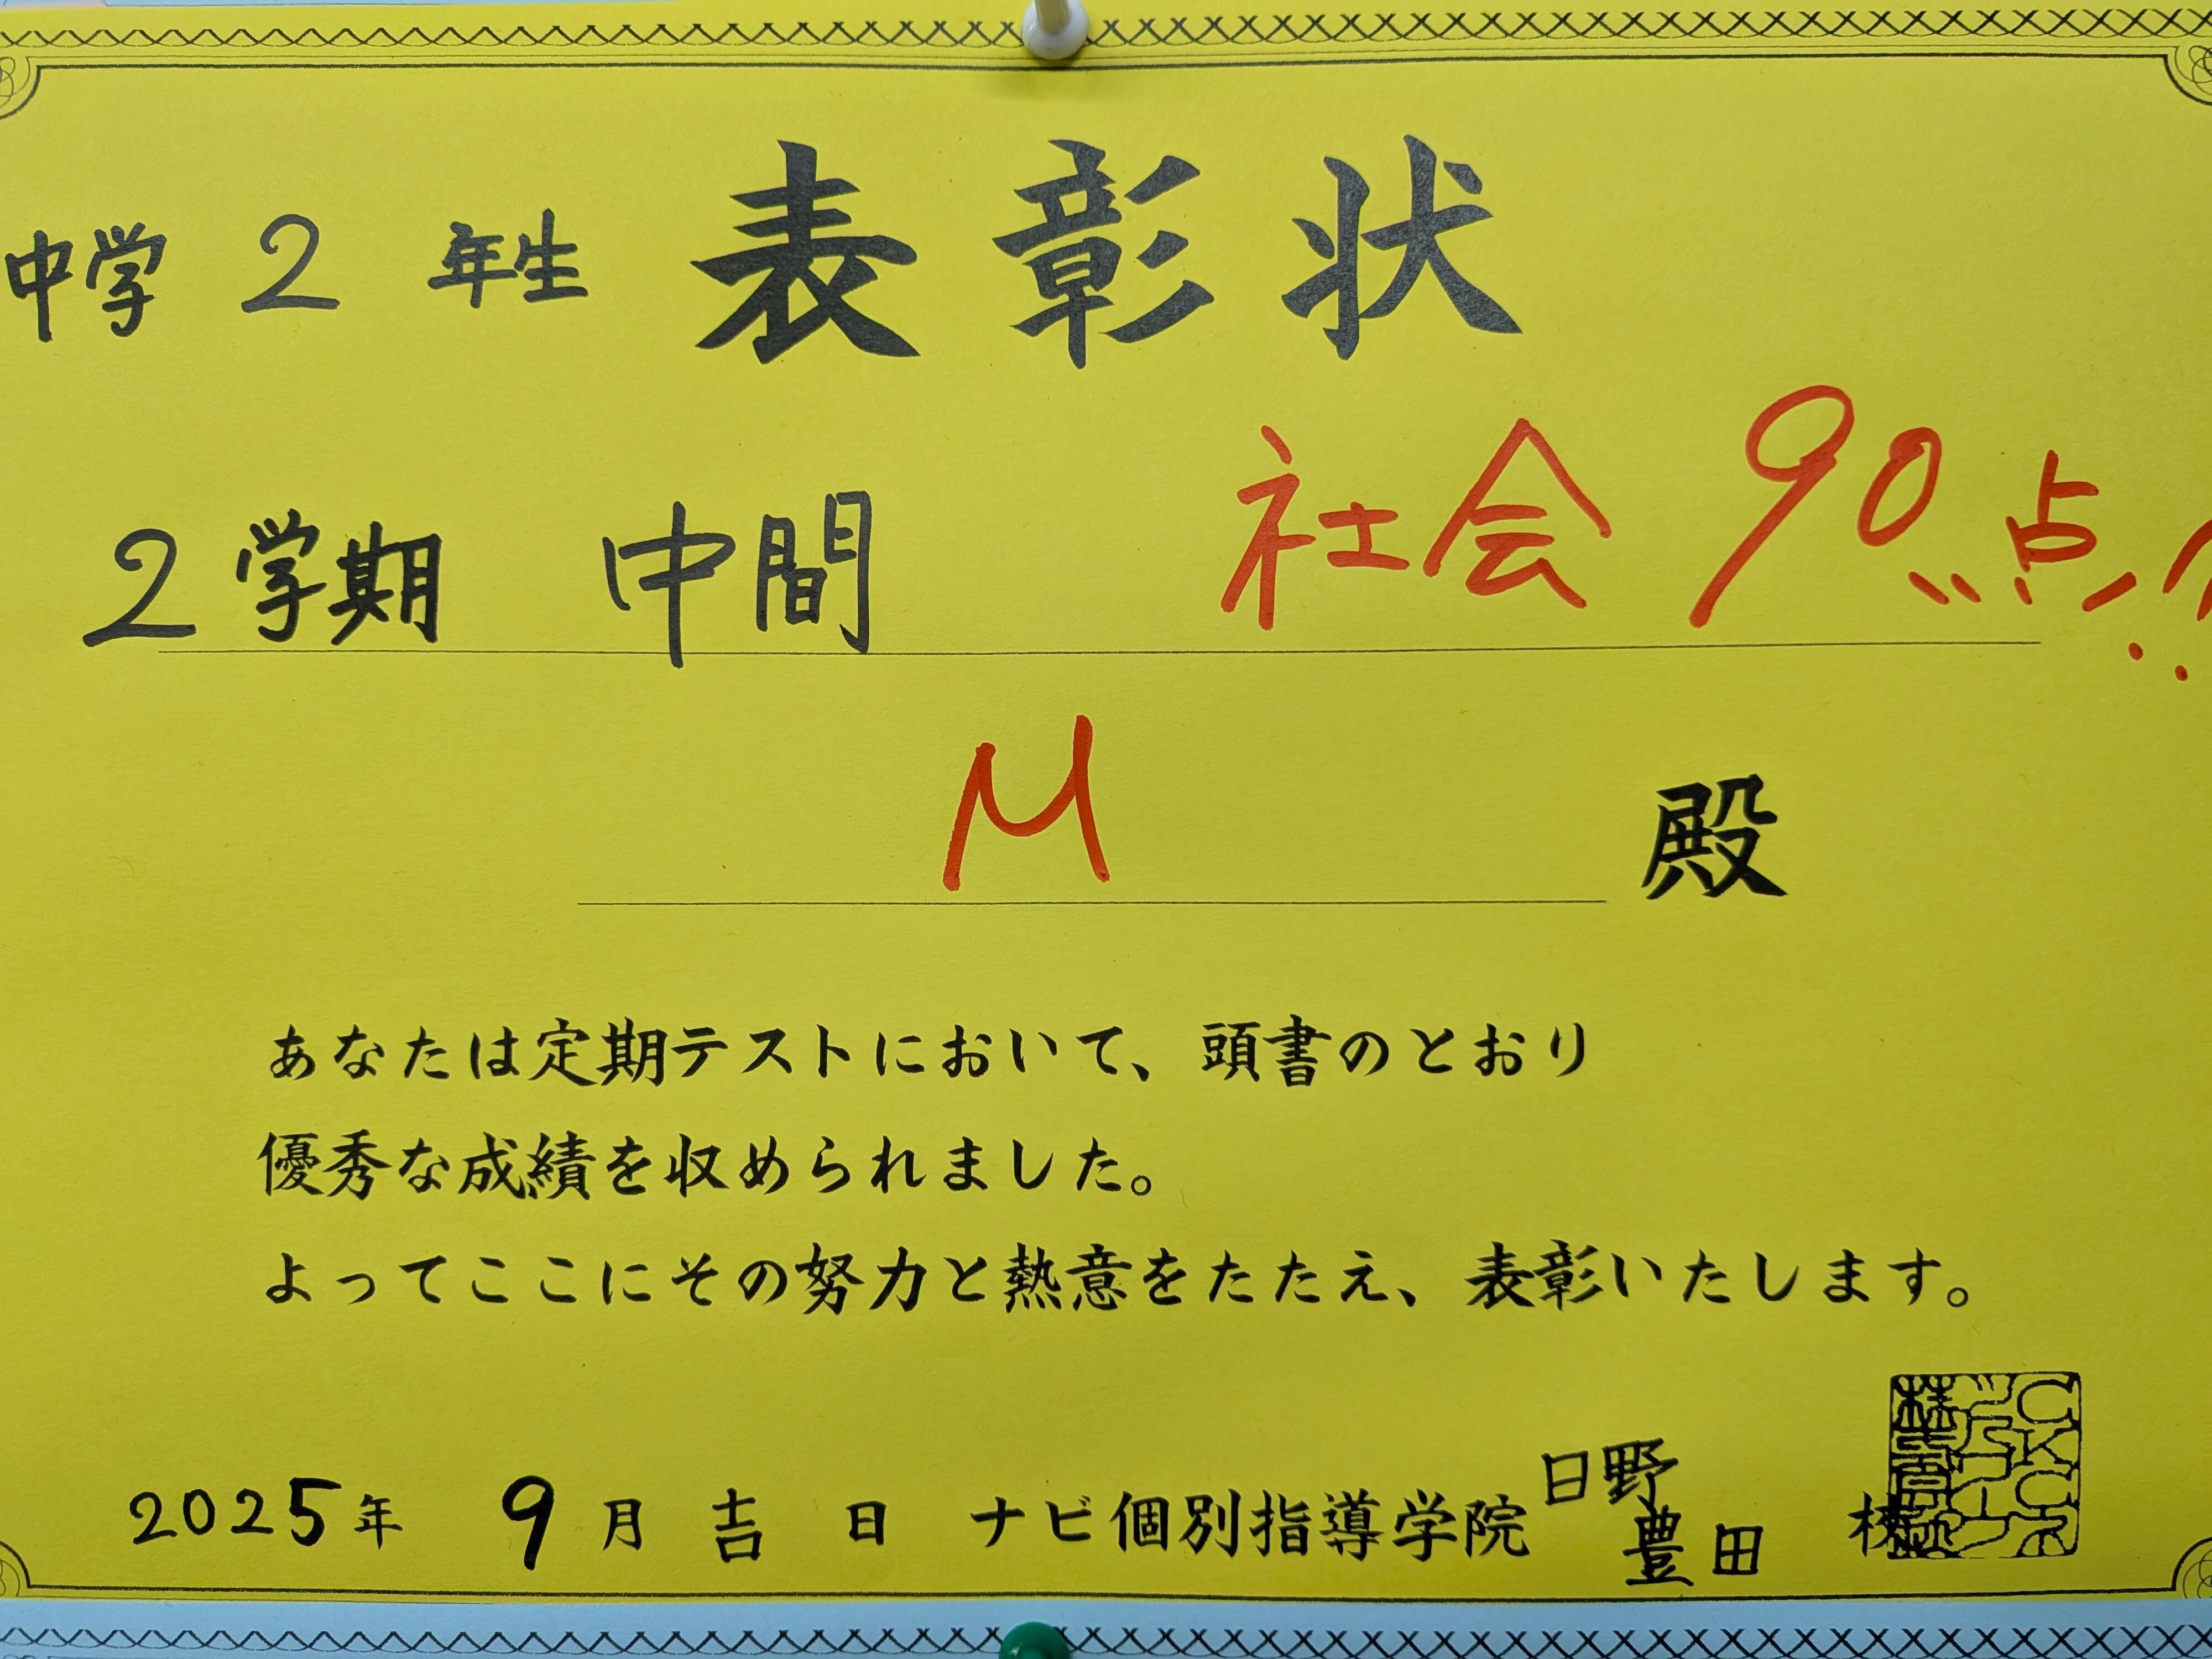 中学 2 年生 表彰状
2学期 中間 社会 90点!!
M 殿
あなたは定期テストにおいて、頭書のとおり
優秀な成績を収められました。
よってここにその努力と熱意をたたえ、表彰いたします。
2025年 9月 吉 日 ナビ個別指導学院 日野豊田 校